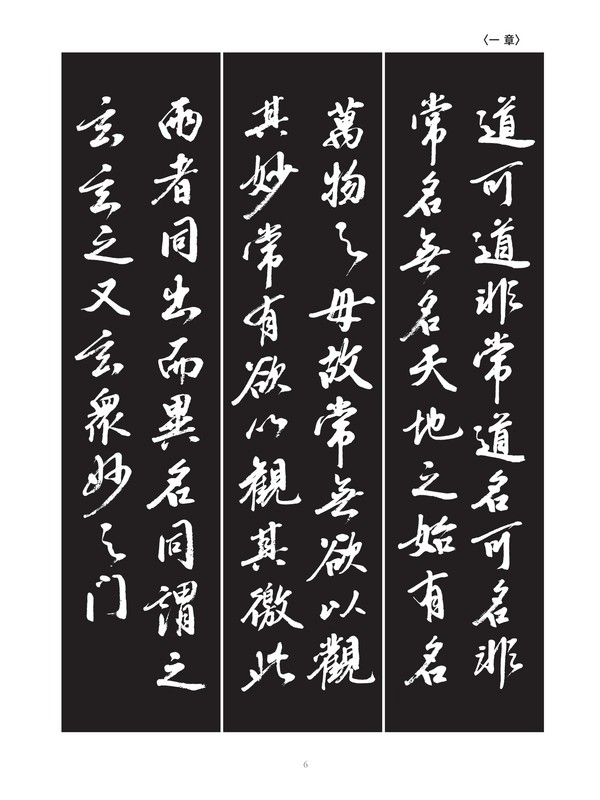 〈一 章〉
道可道非常道名可名非
常名無名天地之始有名
萬物之母故常無欲以觀
其妙常有欲以觀其徼此
兩者同出而異名同謂之
玄玄之又玄眾妙之门
6